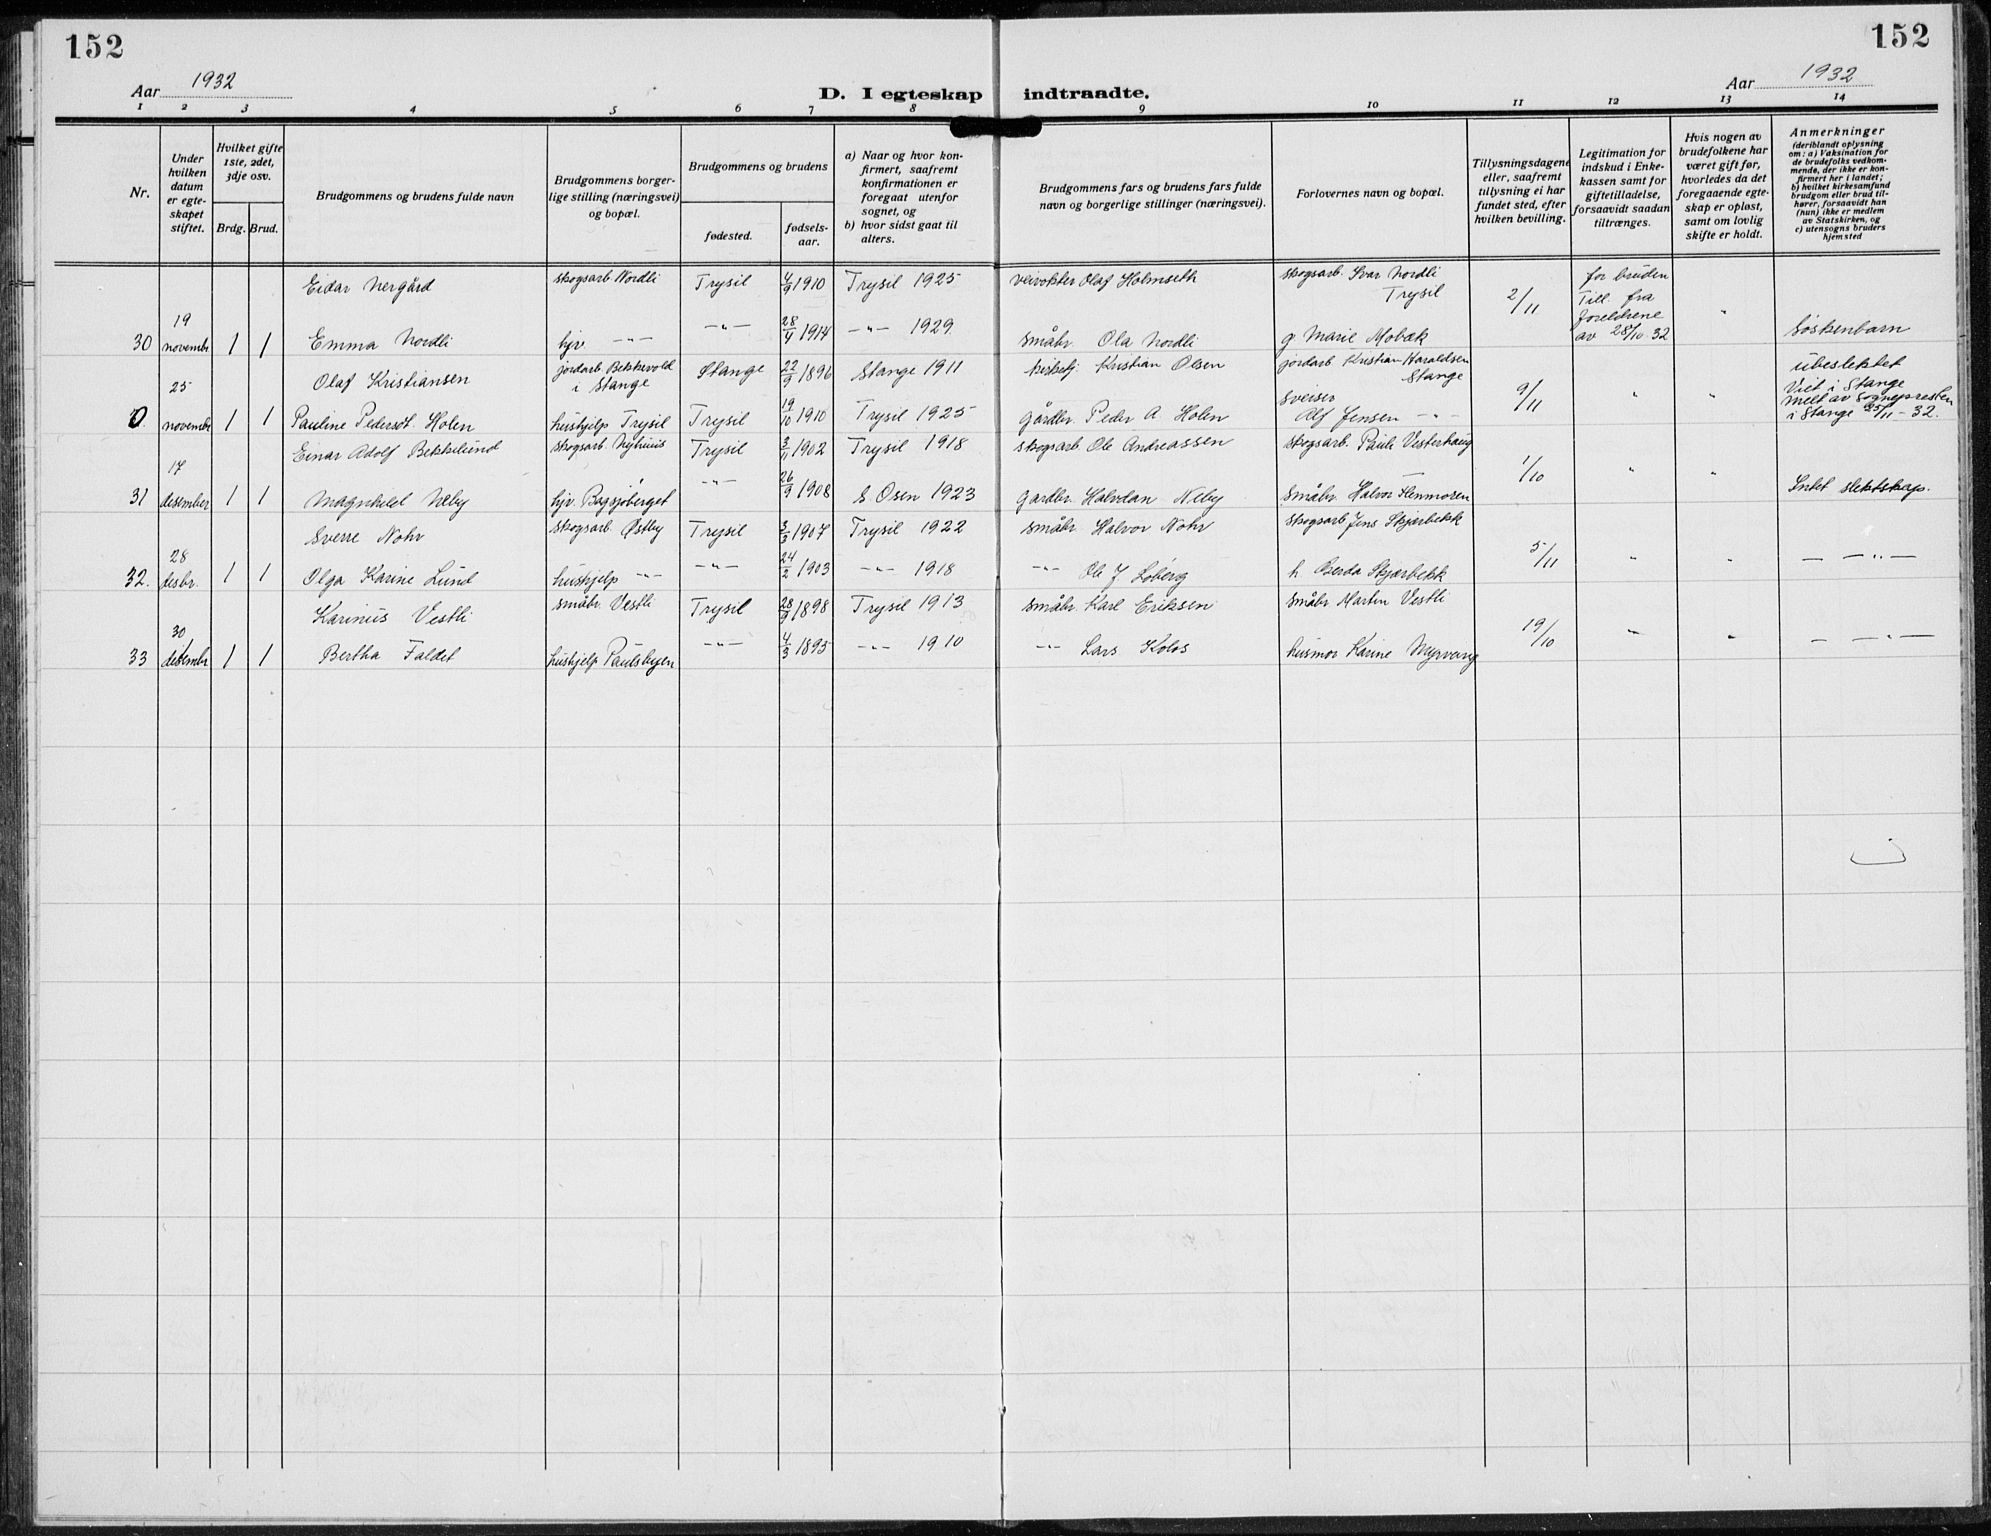 152
152
Aar 1932
D. I egteskap indtraadte.
Aar 1932
1 2 3 4 5 6 7 8 9 10 11 12 13 14
Nr.
Under hvilken datum er egteskapet stiftet.
Hvilket gifte 1ste, 2det, 3dje osv.
Brdg. Brud.
Brudgommens og brudens fulde navn
Brudgommens borgerlige stilling (næringsvei) og bopæl.
Brudgommens og brudens
fødested.
fødselsaar.
a) Naar og hvor konfirmert, saafremt konfirmationen er foregaat utenfor sognet, og
b) hvor sidst gaat til alters.
Brudgommens fars og brudens fars fulde navn og borgerlige stillinger (næringsvei).
Forlovernes navn og bopæl.
Tillysningsdagene eller, saafremt tillysning ei har fundet sted, efter hvilken bevilling.
Legitimation for indskud i Enkekassen samt for giftetilladelse, forsaavidt saadan tiltrænges.
Hvis nogen av brudefolkene har været gift før, hvorledes da det foregaaende egteskap er opløst, samt om lovlig skifte er holdt.
Anmerkninger (deriblandt oplysning om: a) Vaksination for de brudefolks vedkommende, der ikke er konfirmert her i landet; b) hvilket kirkesamfund brudgom eller brud tilhører, forsaavidt han (hun) ikke er medlem av Statskirken, og c) utensogns bruders hjemsted
Eidar Nergård skogsarb Nordli Trysil 4/9 1910 Trysil 1925 veivokter Olaf Holmseth skogsarb. Ivar Nordli Trysil 2/11 for bruden Till. fra foreldrene av 28/10 32 "
30 19 novembr 1 1 Emma Nordli hjv. —"— —"— 28/4 1914 —"— 1929 småbr. Ola Nordli g Marie Mobæk Søskenbarn
Olaf Kristiansen jordarb Bekkevold i Stange Stange 22/9 1896 Stange 1911 Kristian Olsen jordarb Kristian Haraldsen Stange 9/11 " " ubeslektet
0 25 novembr 1 1 Pauline Pedersdt. Holen hushjelp Trysil Trysil 19/10 1910 Trysil 1925 gårdbr. Peder A Holen sveiser Alf Jensen —"— Viet i Stange melt av Sognepresten i Stange 25/11 - 32.
Einar Adolf Bekkelund skogsarb. Nyhuus Trysil 3/11 1902 Trysil 1918 skogsarb. Ole Andreassen skogsarb. Paul Vesterhaug 1/10 " "
31 17 desember 1 1 Magnhild Neby hjv. Bagsjøberget —"— 26/9 1908 S Osen 1923 gardbr. Halvdan Neby småbr. Halvor Flenmoren Intet slektskap.
Sverre Nohr skogsarb. Østby Trysil 3/3 1907 Trysil 1922 småbr. Halvor Nohr skogsarb Jens Skjærbekk 5/11 " "
32. 28 desbr. 1 1 Olga Karine Lund hushjelp —"— —"— 24/2 1903 —"— 1918 —"— Ole J Løberg h. Skjærbekk — —"—
Karinus Vestli småbr. Vestli Trysil 28/9 1898 Trysil 1913 småbr Karl Eriksen småbr Martin Vestli 19/10 " "
33 30 desembr 1 1 Bertha Faldet hushjelp Paulsbyen —"— 4/3 1895 —"— 1910 —"— Lars Kolos husmor Karine Myrvang — —"—